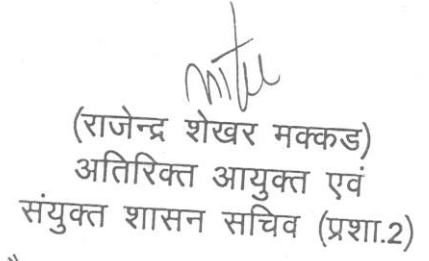 (राजेन्द्र शेखर मक्कड)
अतिरिक्त आयुक्त एवं
संयुक्त शासन सचिव (प्रशा.2)